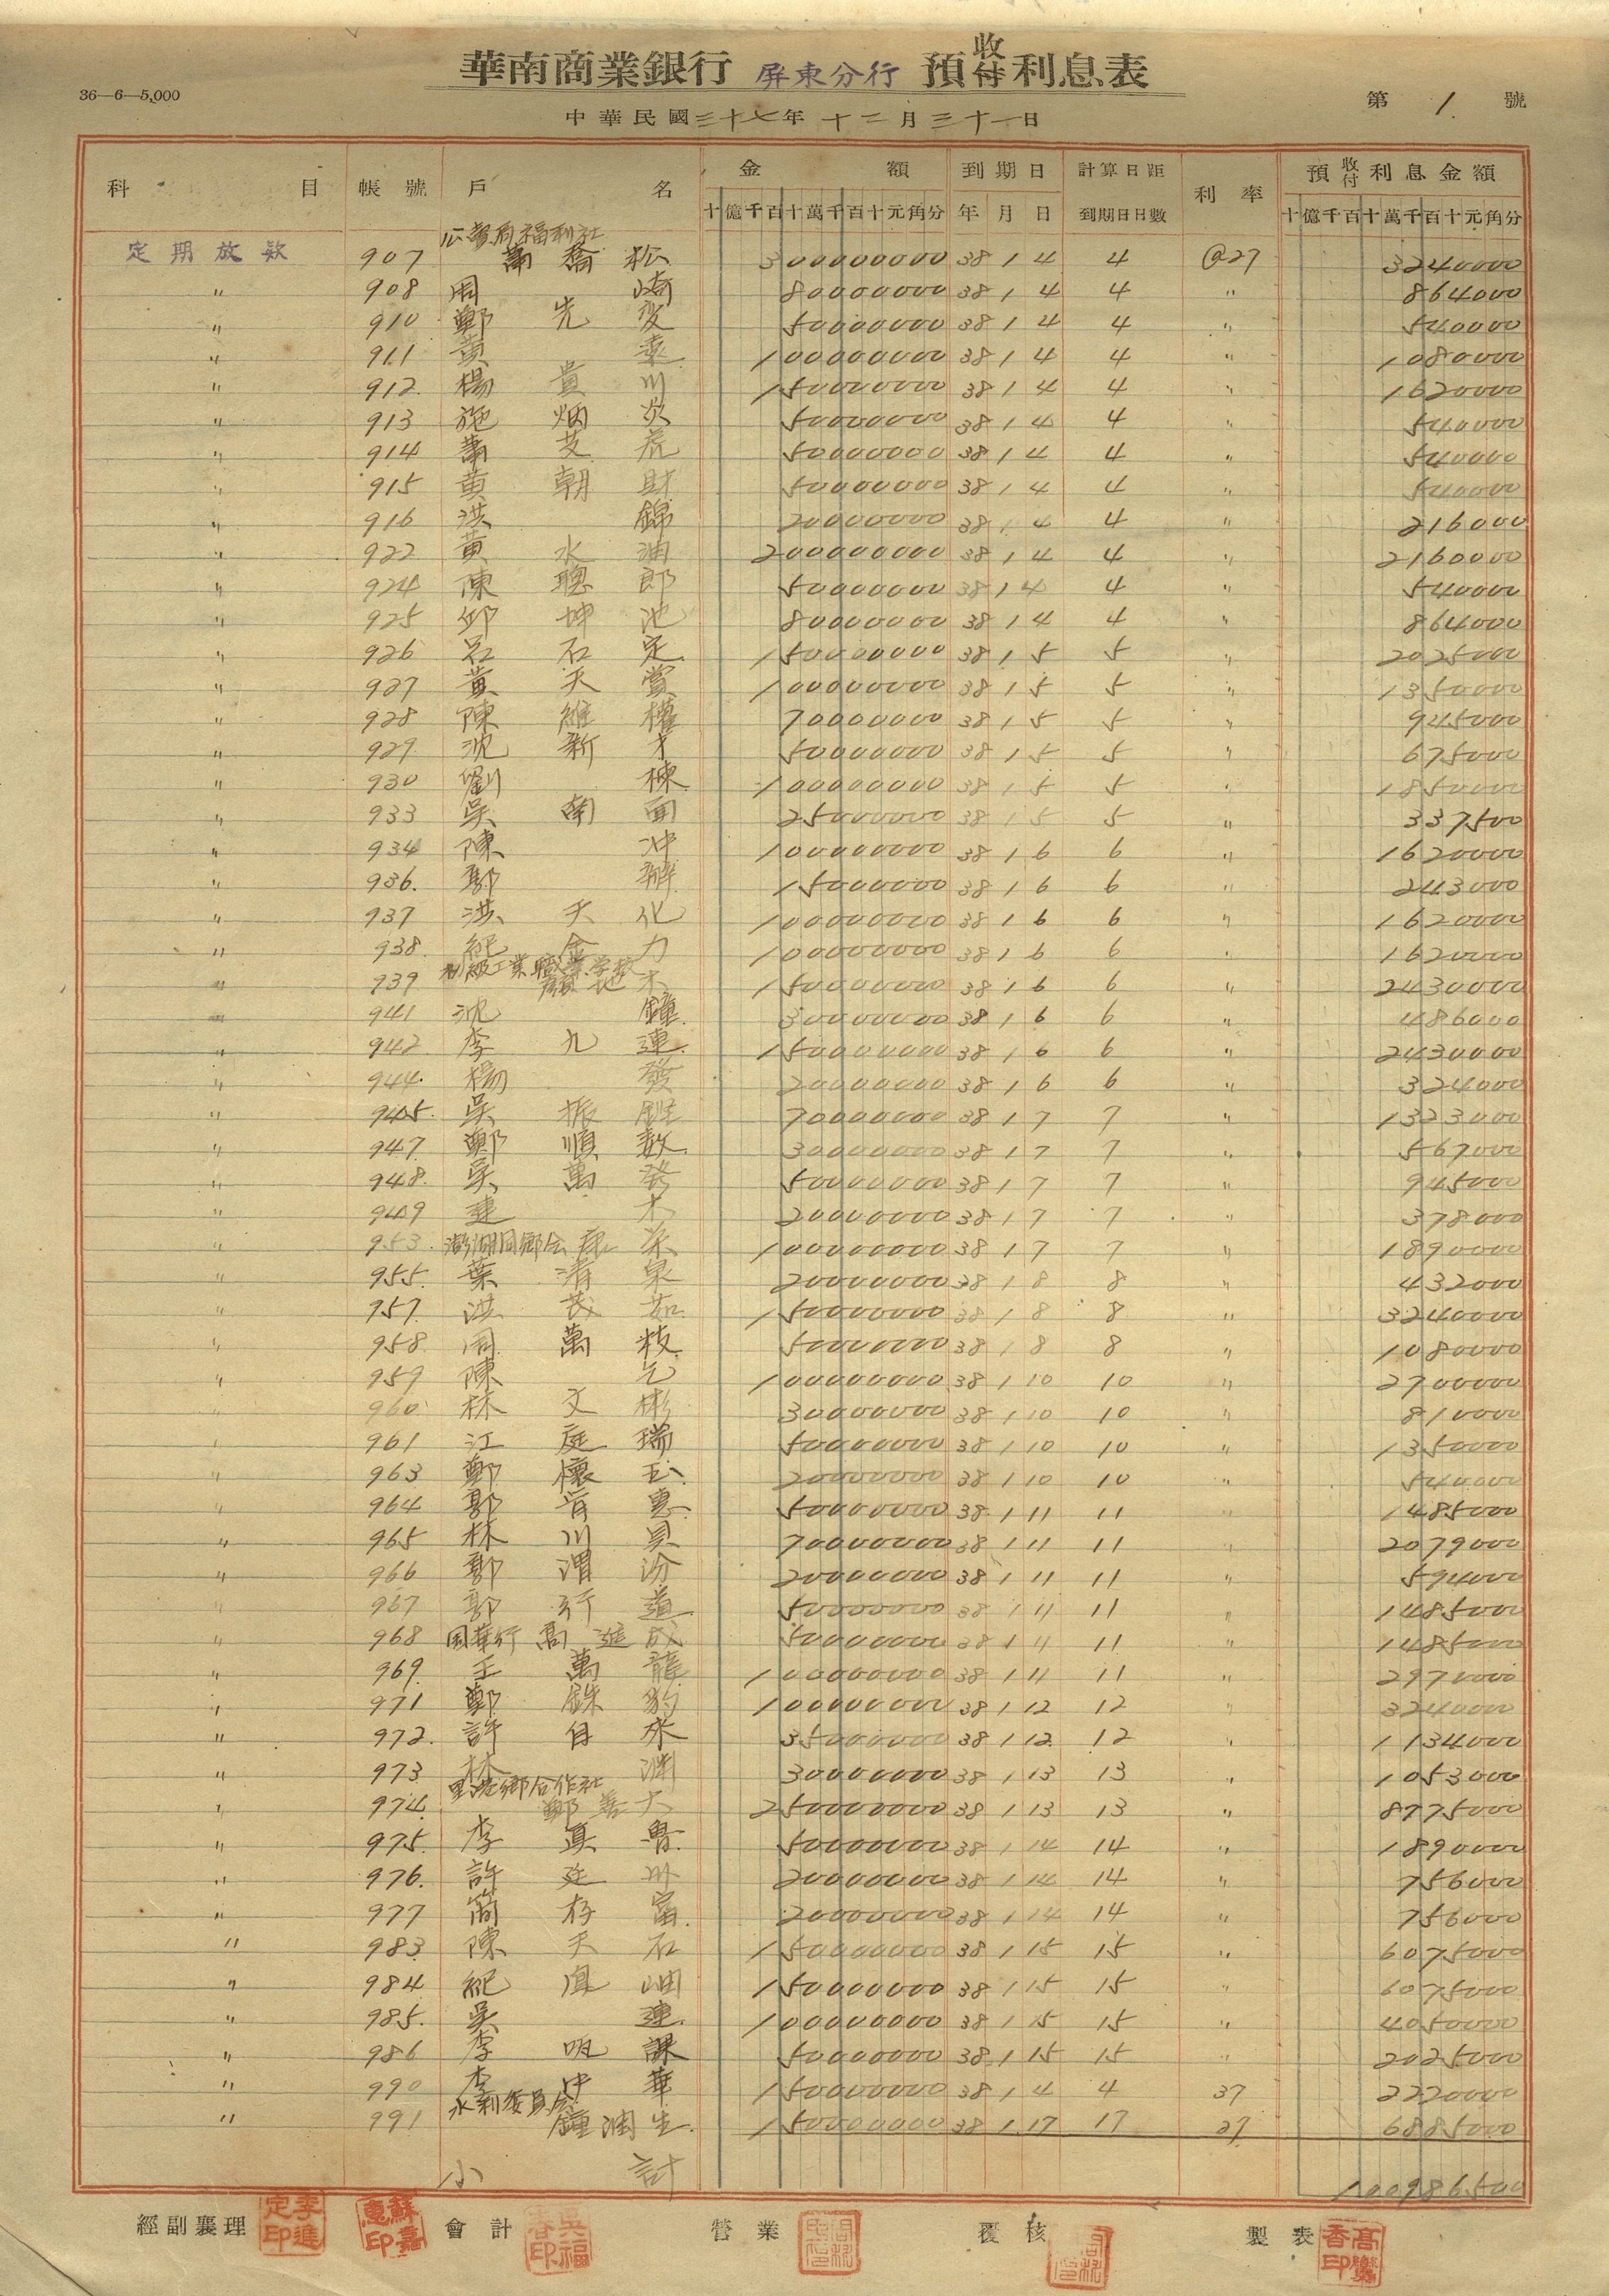 華南商業銀行 屏東分行 預收付利息表
36—6—5,000
第 1 號
中華民國三十七年十二月三十一日
科目 帳號 戶名 金額 到期日 計算日距到期日日數 利率 預收付利息金額
十億千百十萬千百十元角分 年 月 日 十億千百十萬千百十元角分
公賣局福利社
定期放款 907 喬松 300000000 38 1 4 4 @27 3240000
〃 908 周崎 80000000 38 1 4 4 〃 864000
〃 910 鄭先 50000000 38 1 4 4 〃 540000
〃 911 黃 100000000 38 1 4 4 〃 1080000
〃 912 楊貴川 150000000 38 1 4 4 〃 1620000
〃 913 施炳炎 50000000 38 1 4 4 〃 540000
〃 914 50000000 38 1 4 4 〃 540000
〃 915 黃朝財 50000000 38 1 4 4 〃 540000
〃 916 洪錦 20000000 38 1 4 4 〃 216000
〃 922 黃水 200000000 38 1 4 4 〃 2160000
〃 924 陳聰郎 50000000 38 1 4 4 〃 540000
〃 925 邱坤池 80000000 38 1 4 4 〃 864000
〃 926 呂石定 150000000 38 1 5 5 〃 2025000
〃 927 黃天賞 100000000 38 1 5 5 〃 1350000
〃 928 陳維權 70000000 38 1 5 5 〃 945000
〃 929 沈新才 50000000 38 1 5 5 〃 675000
〃 930 劉棟 100000000 38 1 5 5 〃 1350000
〃 933 吳南面 25000000 38 1 5 5 〃 337500
〃 934 陳冲 100000000 38 1 6 6 〃 1620000
〃 936 郭 15000000 38 1 6 6 〃 243000
〃 937 洪天化 100000000 38 1 6 6 〃 1620000
〃 938 紀金力 100000000 38 1 6 6 〃 1620000
初級工業職業学校
〃 939 木 150000000 38 1 6 6 〃 2430000
〃 941 沈鐘 30000000 38 1 6 6 〃 486000
〃 942 李九連 150000000 38 1 6 6 〃 2430000
〃 944 楊發 20000000 38 1 6 6 〃 324000
〃 945 吳振 70000000 38 1 7 7 〃 1323000
〃 947 鄭順 30000000 38 1 7 7 〃 567000
〃 948 吳萬發 50000000 38 1 7 7 〃 945000
〃 949 連木 20000000 38 1 7 7 〃 378000
〃 953 澎湖同鄉会 100000000 38 1 7 7 〃 1890000
〃 955 葉清泉 20000000 38 1 8 8 〃 432000
〃 957 洪茂 150000000 38 1 8 8 〃 3240000
〃 958 周萬枝 50000000 38 1 8 8 〃 1080000
〃 959 陳 100000000 38 1 10 10 〃 2700000
〃 960 林文彬 30000000 38 1 10 10 〃 810000
〃 961 江庭瑞 50000000 38 1 10 10 〃 1350000
〃 963 鄭懷玉 20000000 38 1 10 10 〃 540000
〃 964 郭惠 50000000 38 1 11 11 〃 1485000
〃 965 林川貝 70000000 38 1 11 11 〃 2079000
〃 966 郭渭汾 20000000 38 1 11 11 〃 594000
〃 967 郭行道 50000000 38 1 11 11 〃 1485000
〃 968 国華行 高進成 50000000 38 1 11 11 〃 1485000
〃 969 王萬龍 100000000 38 1 11 11 〃 2970000
〃 971 鄭銖豹 100000000 38 1 12 12 〃 3240000
〃 972 許自來 35000000 38 1 12 12 〃 1134000
〃 973 林淵 30000000 38 1 13 13 〃 1053000
里港鄉合作社
〃 974 鄭大 250000000 38 1 13 13 〃 8775000
〃 975 李真骨 50000000 38 1 14 14 〃 1890000
〃 976 許廷 20000000 38 1 14 14 〃 756000
〃 977 簡存富 20000000 38 1 14 14 〃 756000
〃 983 陳天石 150000000 38 1 15 15 〃 6075000
〃 984 紀 150000000 38 1 15 15 〃 6075000
〃 985 吳連 100000000 38 1 15 15 〃 4050000
〃 986 李明課 50000000 38 1 15 15 〃 2025000
〃 990 李中華 150000000 38 1 4 4 37 2220000
水利委員会
〃 991 鐘潤生 150000000 38 1 17 17 27 6885000
小計 100986500
經副襄理 李進定印 蘇嘉惠印 會計 吳福春印 營業 覆核 製表 高蘭香印